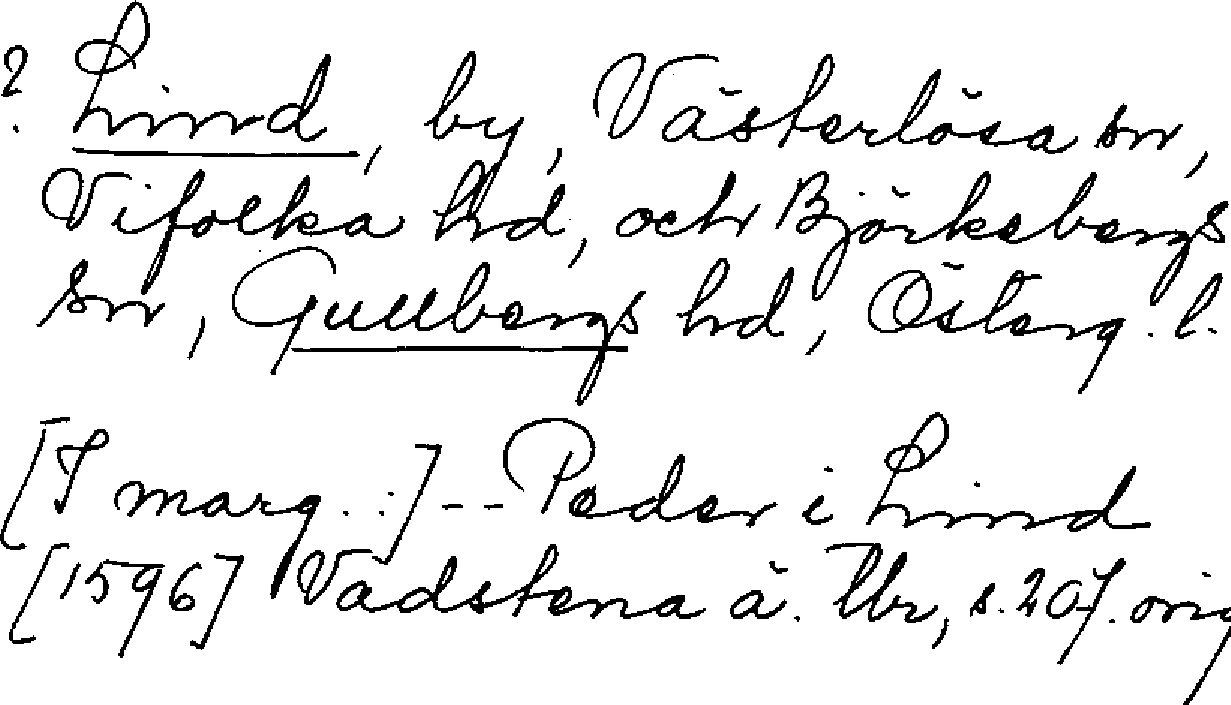 ? Lind, by, Västerlösa sn,
Vifolka hd, och Björkebergs
sn, Gullbergs hd, Österg. l.
[I marg. :] -- Peder i Lind
[1596] Vadstena ä. tb, s. 207. orig